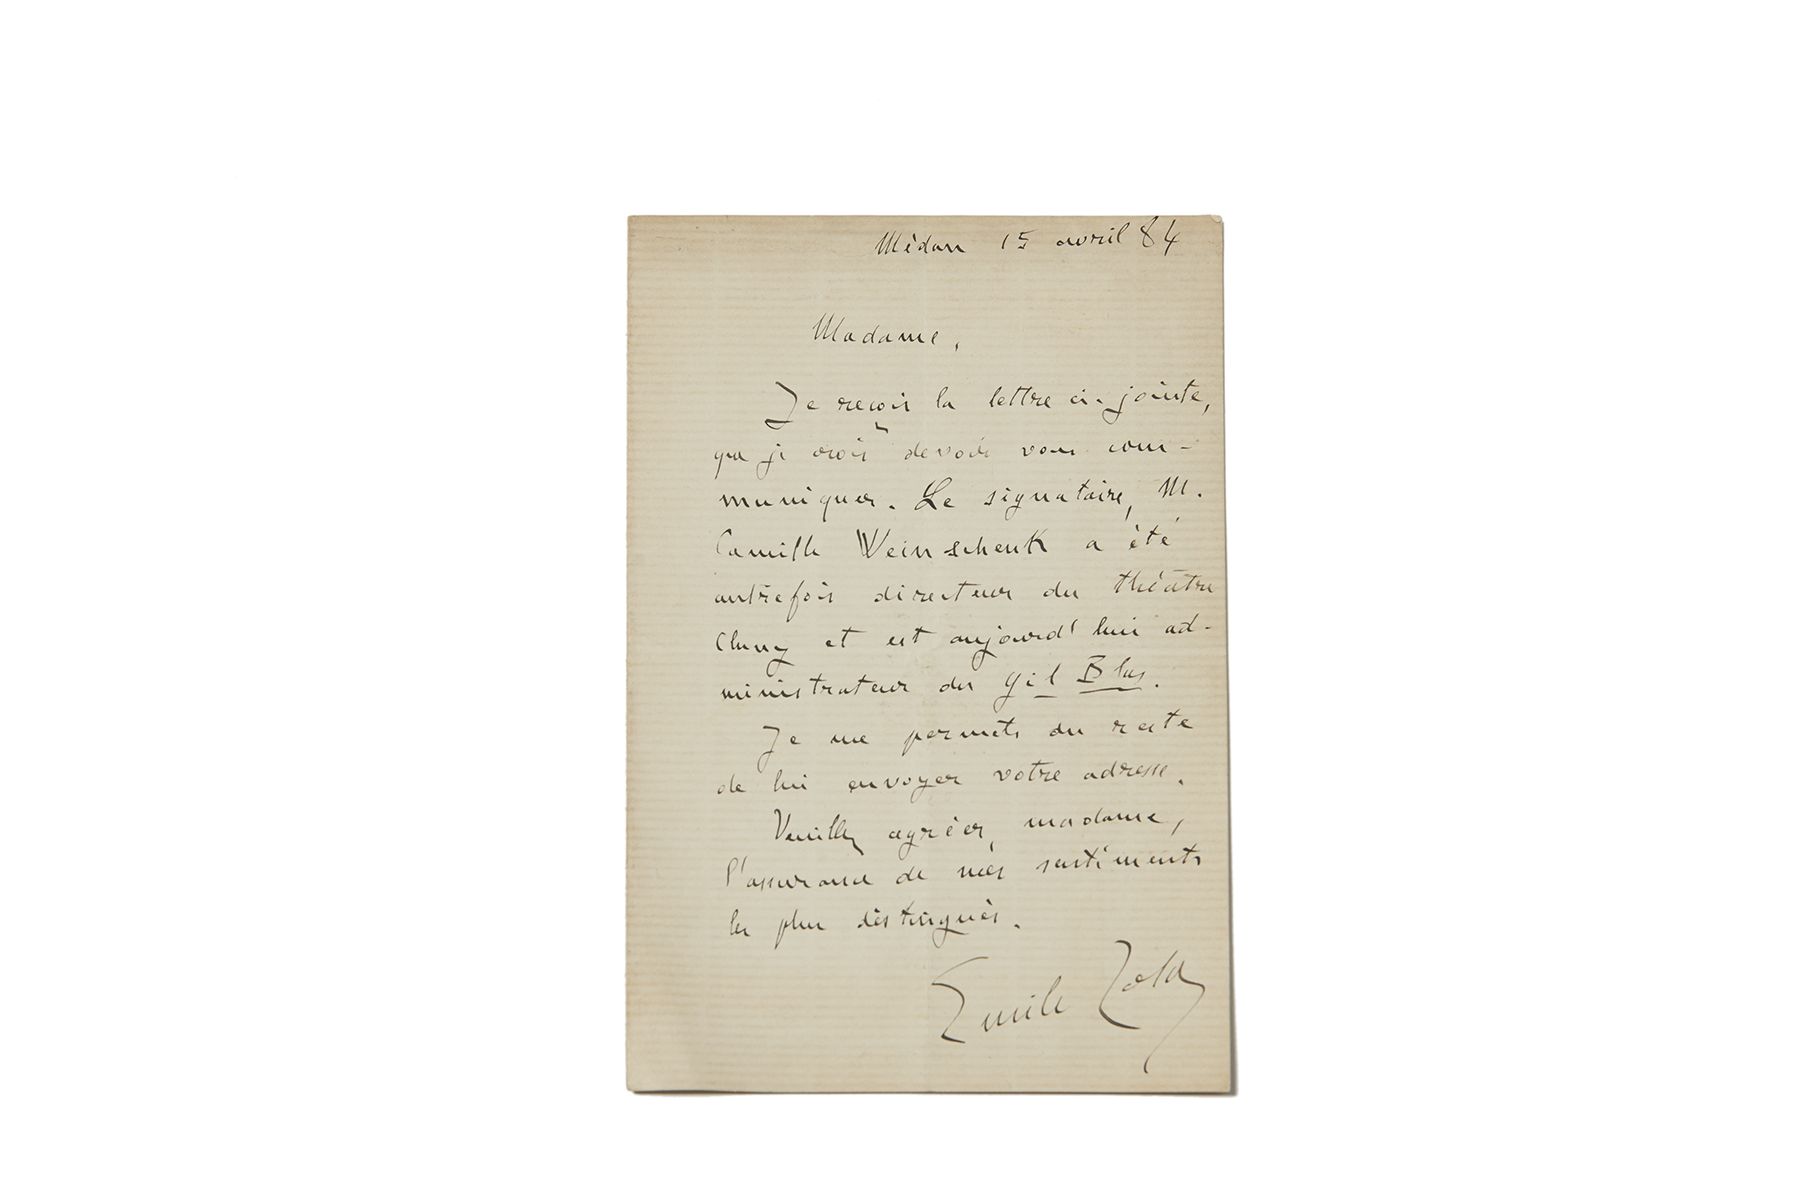 Médan 15 avril 84
Madame,
Je reçois la lettre ci-jointe,
que je crois devoir vous com-
muniquer. Le signataire, M.
Camille Weinschenk a été
autrefois directeur du théâtre
Cluny et est aujourd'hui ad-
ministrateur du Gil Blas.
Je me permets du reste
de lui envoyer votre adresse.
Veuillez agréer, madame,
l'assurance de mes sentiments
les plus distingués.
Emile Zola